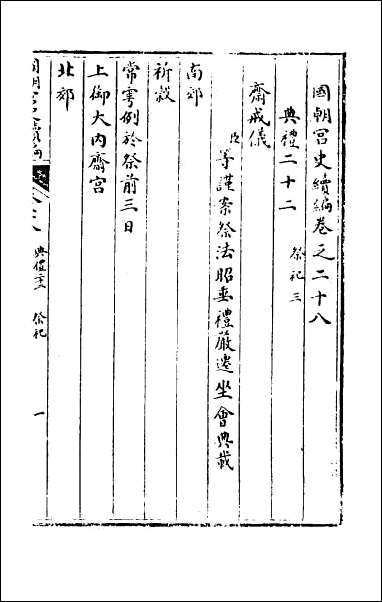 國朝宮史續編卷之二十八
典禮二十二 祭祀三
齋戒儀
臣等謹案祭法昭垂禮嚴遷坐會典載
南郊
祈穀
常雩例於祭前三日
上御大内齋宮
北郊
國朝宮史續編 卷二十八 典禮二十二 祭祀 一